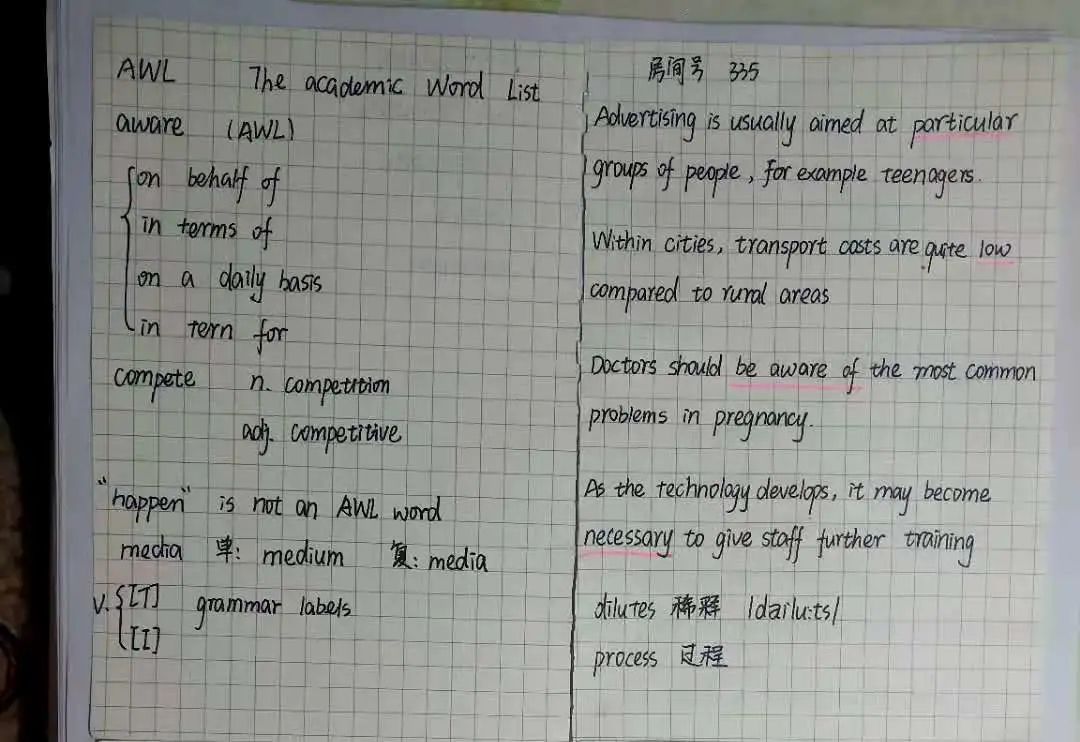 AWL The academic Word List
aware (AWL)
on behalf of
in terms of
on a daily basis
in tern for
compete n. competition
adj. competitive
"happen" is not an AWL word
media 单: medium 复: media
v. [T] grammar labels
[I]
房间号 335
Advertising is usually aimed at particular
groups of people, for example teenagers.
Within cities, transport costs are quite low
compared to rural areas
Doctors should be aware of the most common
problems in pregnancy.
As the technology develops, it may become
necessary to give staff further training
dilutes 稀释 /dailu:ts/
process 过程